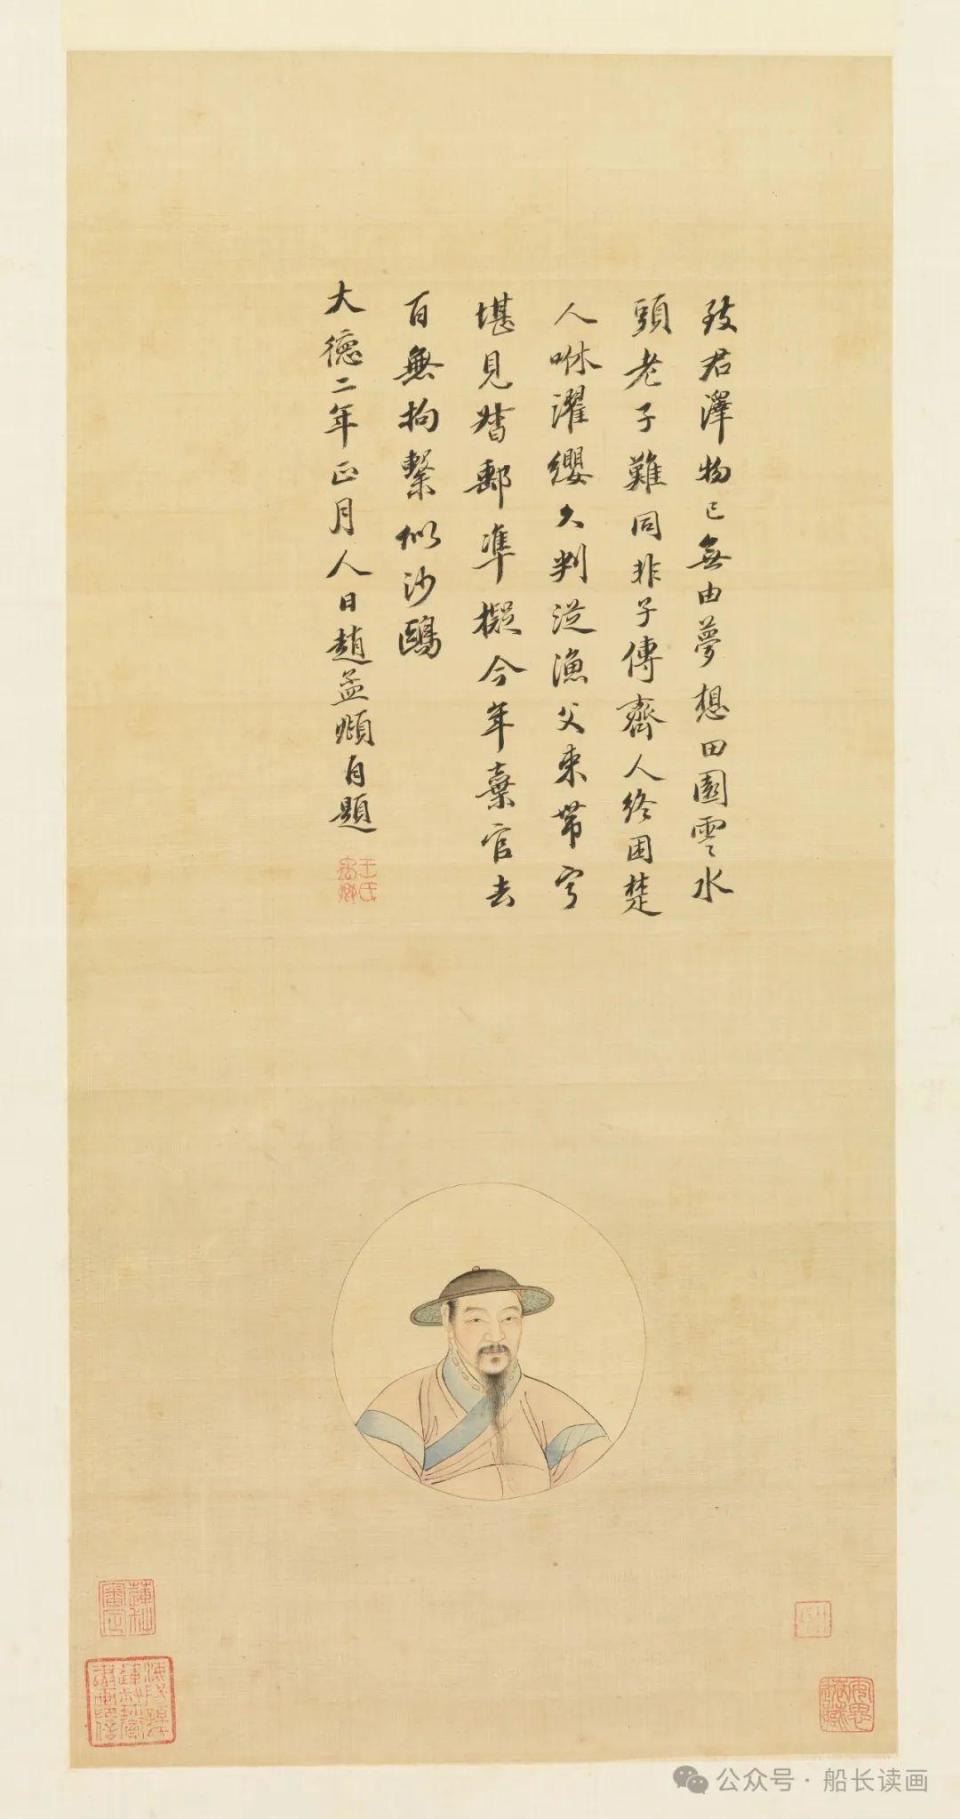 致君澤物已無由夢想田園雲水
頭老子難同非子傳齊人終困楚
人咻濯纓久判從漁父束帶寧
堪見督郵凖擬今年棄官去
百無拘繫似沙鷗
大德二年正月人日趙孟頫自題
王氏禹卿
安思遠藏
公众号·船长读画